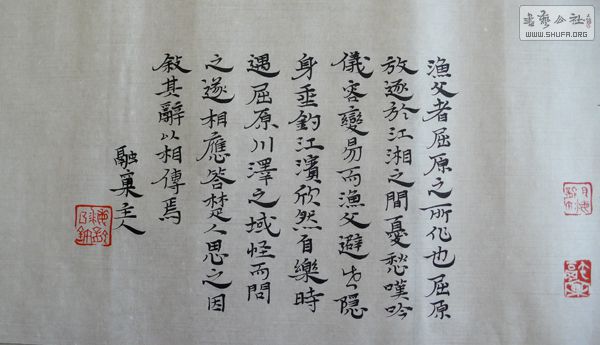 漁父者屈原之所作也屈原
放逐於江湘之間憂愁嘆吟
儀容變易而漁父避世隱
身垂釣江濱欣然自樂時
遇屈原川澤之域怪而問
之遂相應答楚人思之因
敘其辭以相傳焉
融真主人
書藝公社
WWW.SHUFA.ORG